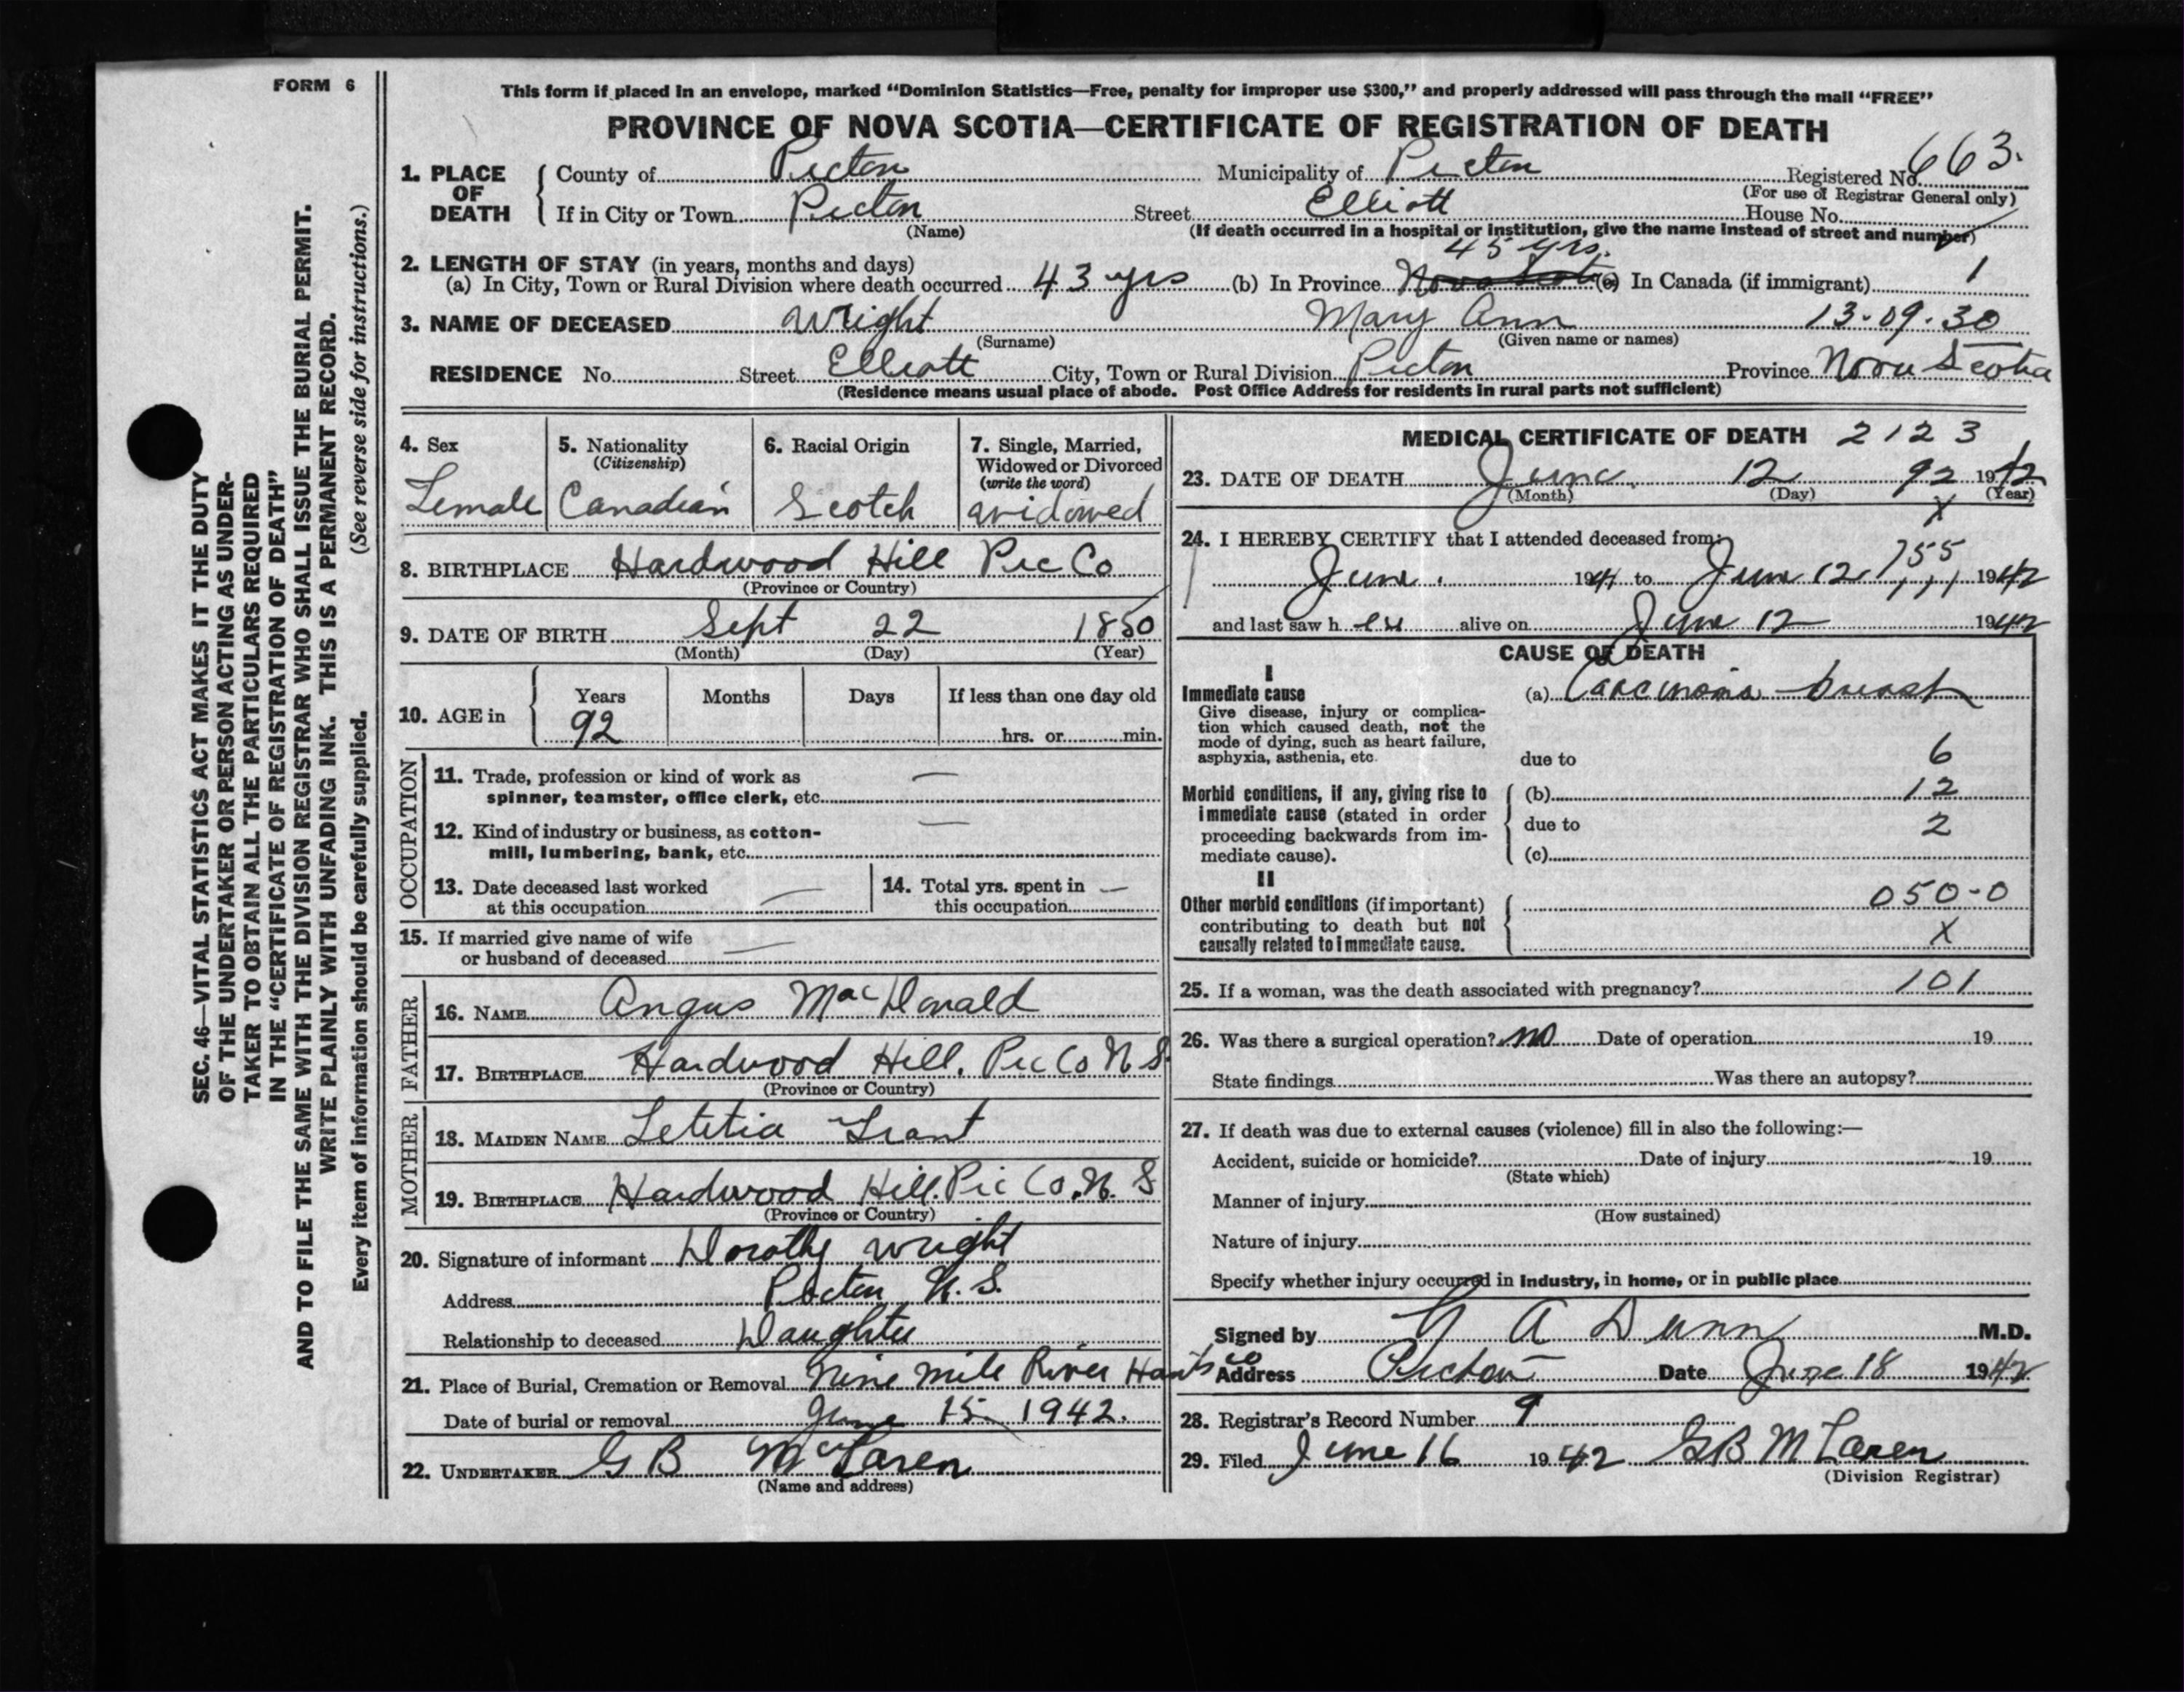 FORM 6
This form if placed in an envelope, marked “Dominion Statistics—Free, penalty for improper use $300,” and properly addressed will pass through the mail “FREE”
PROVINCE OF NOVA SCOTIA—CERTIFICATE OF REGISTRATION OF DEATH
1. PLACE OF DEATH County of Pictou Municipality of Pictou Registered No. 663.
(For use of Registrar General only)
If in City or Town Pictou Street Elliott House No.
(Name) (If death occurred in a hospital or institution, give the name instead of street and number)
45 yrs.
2. LENGTH OF STAY (in years, months and days)
(a) In City, Town or Rural Division where death occurred 43 yrs (b) In Province (c) In Canada (if immigrant) 1
3. NAME OF DECEASED Wright Mary Ann 13-09-30
(Surname) (Given name or names)
RESIDENCE No. Street Elliott City, Town or Rural Division Pictou Province Nova Scotia
(Residence means usual place of abode. Post Office Address for residents in rural parts not sufficient)
4. Sex
Female
5. Nationality
(Citizenship)
Canadian
6. Racial Origin
Scotch
7. Single, Married,
Widowed or Divorced
(write the word)
widowed
8. BIRTHPLACE Hardwood Hill Pic Co
(Province or Country)
9. DATE OF BIRTH Sept 22 1850
(Month) (Day) (Year)
10. AGE in Years Months Days If less than one day old
92 hrs. or min.
OCCUPATION
11. Trade, profession or kind of work as —
spinner, teamster, office clerk, etc.
12. Kind of industry or business, as cotton- —
mill, lumbering, bank, etc.
13. Date deceased last worked —
at this occupation
14. Total yrs. spent in —
this occupation
15. If married give name of wife —
or husband of deceased
FATHER
16. NAME Angus MacDonald
17. BIRTHPLACE Hardwood Hill. Pic Co N S
(Province or Country)
MOTHER
18. MAIDEN NAME Letitia Grant
19. BIRTHPLACE Hardwood Hill. Pic Co. N. S
(Province or Country)
20. Signature of informant Dorothy Wright
Address Pictou N. S.
Relationship to deceased Daughter
21. Place of Burial, Cremation or Removal Nine Mile River Hants Co
Date of burial or removal June 15 1942.
22. UNDERTAKER G B McLaren
(Name and address)
MEDICAL CERTIFICATE OF DEATH 2123
23. DATE OF DEATH June 12 92 1942
(Month) (Day) (Year)
X
24. I HEREBY CERTIFY that I attended deceased from:
755
June 1941 to June 12 1942
and last saw her alive on June 12 1942
CAUSE OF DEATH
I
Immediate cause (a) Carcinoma breast
Give disease, injury or complica-
tion which caused death, not the
mode of dying, such as heart failure,
asphyxia, asthenia, etc. due to 6
Morbid conditions, if any, giving rise to (b) 12
immediate cause (stated in order due to 2
proceeding backwards from im-
mediate cause). (c)
II
Other morbid conditions (if important) 050-0
contributing to death but not
causally related to immediate cause. X
25. If a woman, was the death associated with pregnancy? 101
26. Was there a surgical operation? no Date of operation 19
State findings Was there an autopsy?
27. If death was due to external causes (violence) fill in also the following:—
Accident, suicide or homicide? Date of injury 19
(State which)
Manner of injury
(How sustained)
Nature of injury
Specify whether injury occurred in industry, in home, or in public place
Signed by G A Dunn M.D.
Address Pictou Date June 18 1942
28. Registrar's Record Number 9
29. Filed June 16 1942 G B McLaren
(Division Registrar)
SEC. 46—VITAL STATISTICS ACT MAKES IT THE DUTY
OF THE UNDERTAKER OR PERSON ACTING AS UNDER-
TAKER TO OBTAIN ALL THE PARTICULARS REQUIRED
IN THE “CERTIFICATE OF REGISTRATION OF DEATH”
AND TO FILE THE SAME WITH THE DIVISION REGISTRAR WHO SHALL ISSUE THE BURIAL PERMIT.
WRITE PLAINLY WITH UNFADING INK. THIS IS A PERMANENT RECORD.
Every item of information should be carefully supplied. (See reverse side for instructions.)